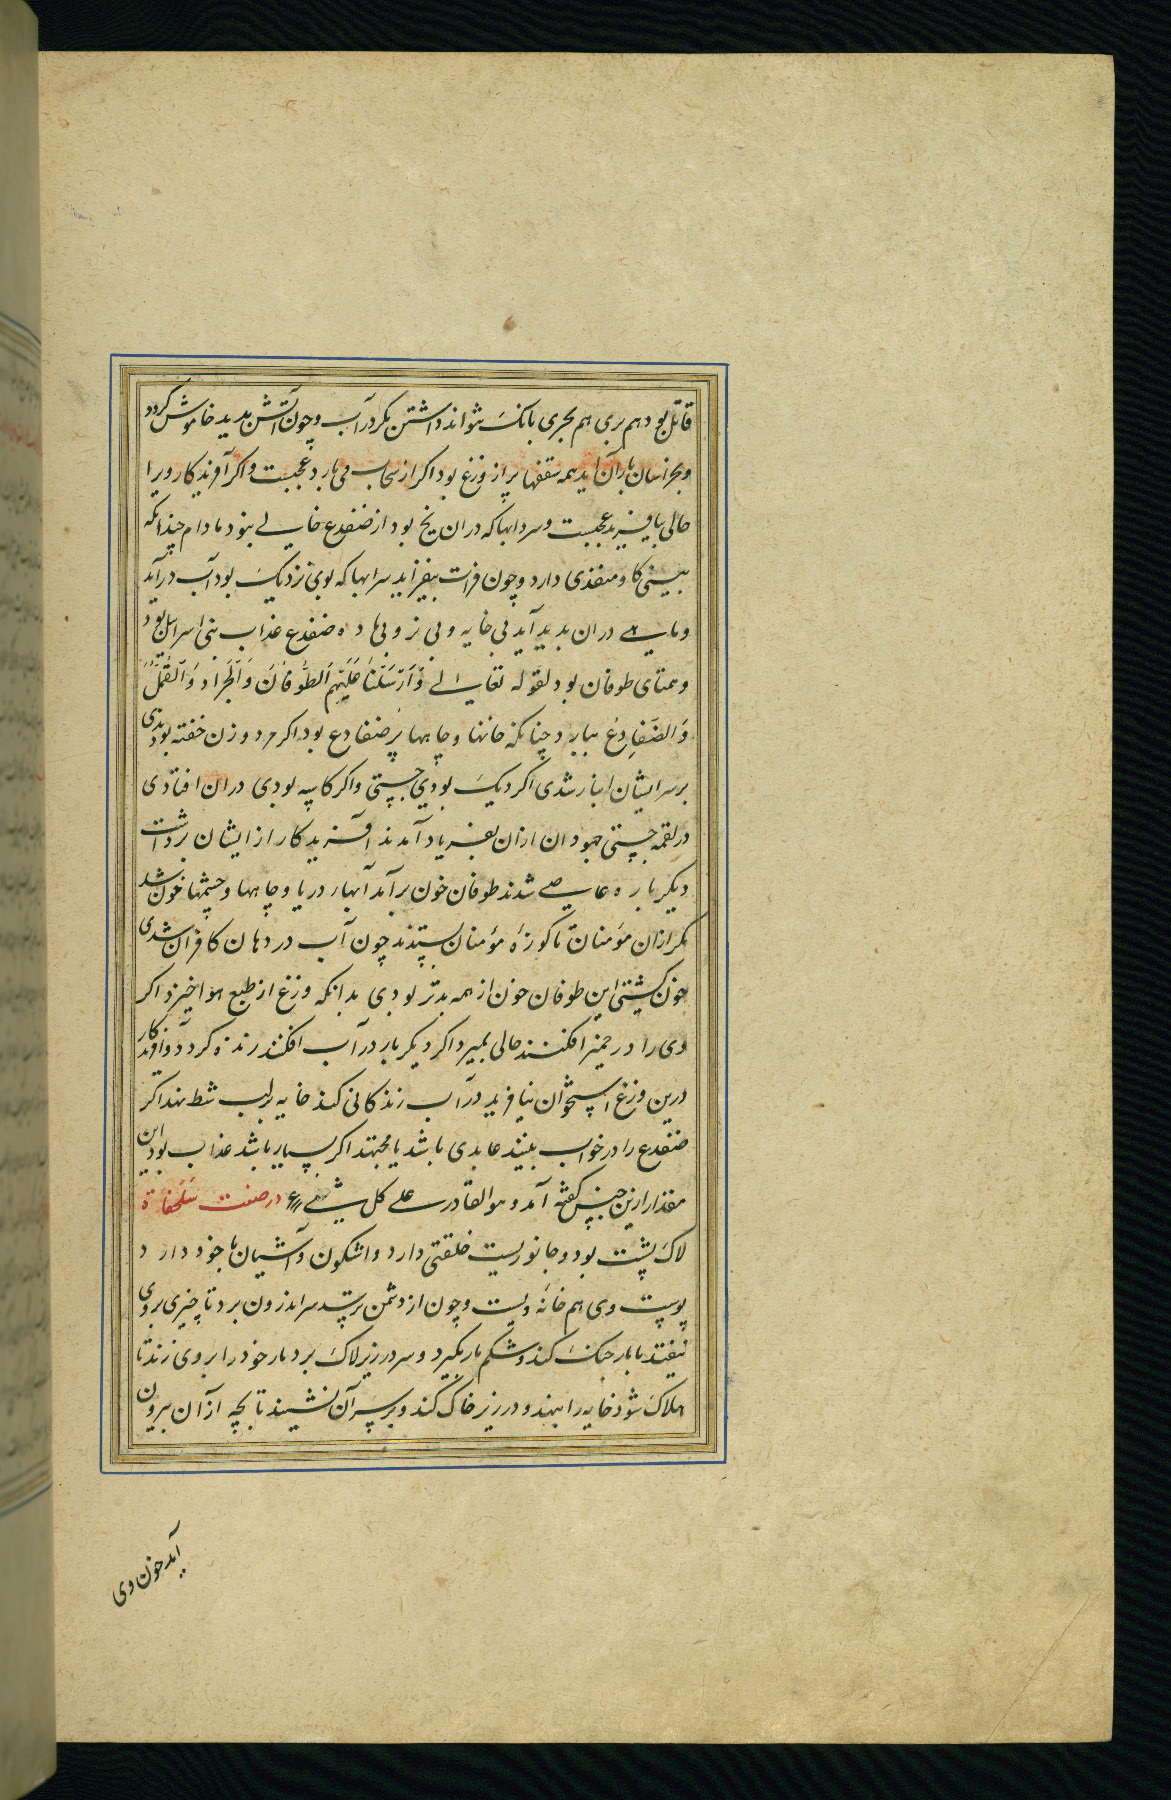 قاتل بود هم بری هم بحری بانک نتواند داشتن مکر در آب و چون آتش بدید خاموش کردد
و بخراسان باران آید همه سقفها پر از وزغ بود اکر از سحاب می بارد عجبست و اکر آفریدکار ویرا
حالی بیافریند عجبست و سردابها که در ان یخ بود از ضفدع خالی نبود مادام چندانکه
بینی کا و منفذی دارد و چون فرات بیفزاید سرابها که بوی نزدیک بود آب درآید
و ماهی در ان بدید آید بی خایه و بی نر و بی ماده ضفدع عذاب بنی اسرایل بود
و همتای طوفان بود لقوله تعالی وَاَرْسَلْنا عَلَیْهِمُ الطُّوفانَ وَالْجَرادَ وَالْقُمَّلَ
وَالضَّفادِعَ ببارید چنانکه خانها و چاهها پر ضفادع بود اکر مرد و زن خفته بودندی
بر سر ایشان انبار شدی اکر دیک بودی جستی و اکر کاسه بودی در ان افتادی
در لقمه جستی جهودان از ان بفریاد آمدند آفریدکار از ایشان برداشت
دیکر باره عاصی شدند طوفان خون برآمد آبهاء دریا و چاهها و چشمها خون شد
مکر از ان مومنان تا کوزهٔ مؤمنان بستدند چون آب در دهان کافران شدی
خون کشتی این طوفان خون از همه بدتر بودی بدانکه وزغ از طبع هوا خیزد اکر
وی را در خمیر افکنند حالی بمیرد اکر دیکر بار در آب افکنند زنده کردد و آفریدکار
درین وزغ استخوان نیافرید در آب زندکانی کند خایه بر لب شط نهد اکر
ضفدع را در خواب بینند عابدی باشد یا مجتهد اکر بسیار باشد عذاب بود این
مقدار ازین جنس کفته آمد و هو القادر علی کل شیء در صفت سلحفاة
لاک پشت بود و جانوریست خلقتی دارد واشکون و آشیان با خود دارد
پوست وی هم خانهٔ ویست و چون از دشمن ترسد سر اندرون برد تا چیزی بروی
نیفتد با مار جنک کند و شکم مار بکیرد و سر در زیر لاک برد مار خود را بر وی زند تا
هلاک شود خایه را بنهد و در زیر خاک کند و بر سر آن نشیند تا بچه از آن بیرون
آید خون وی